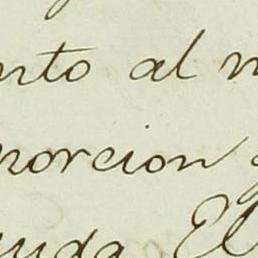 nto al
porcion
uda El